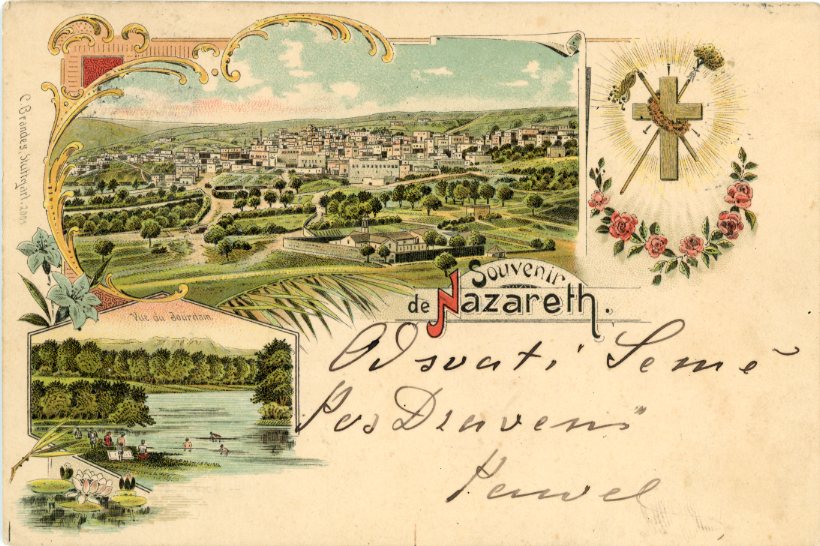 C. Brandes, Stuttgart. 2001
Souvenir
de Nazareth.
Vue du Jourdain.
Od svati Semě
Pos Draveni
Pawel